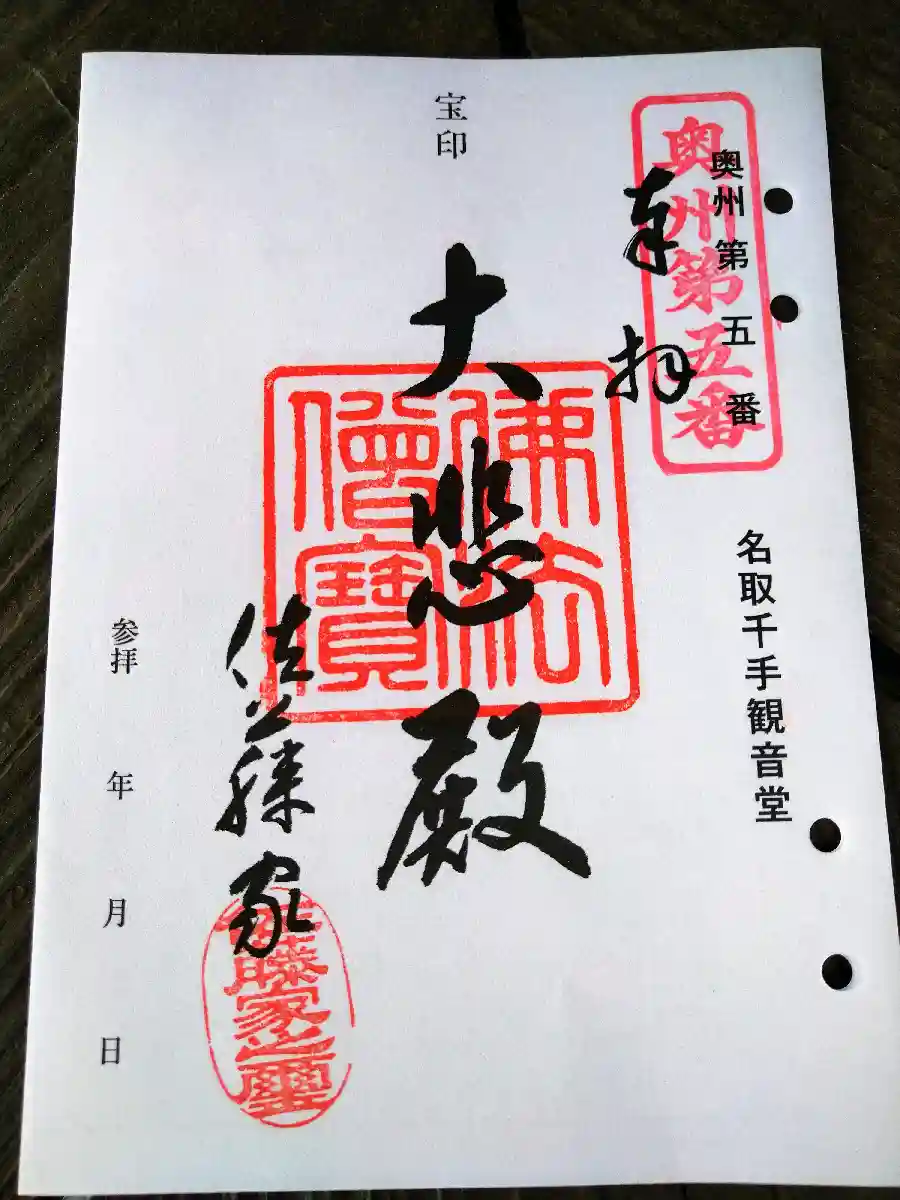 奥州第五番
奥州第五番
名取千手観音堂
奉拝
宝印
大悲殿
佛法
僧寳
佐藤家
佐藤家之璽
参拝 年 月 日